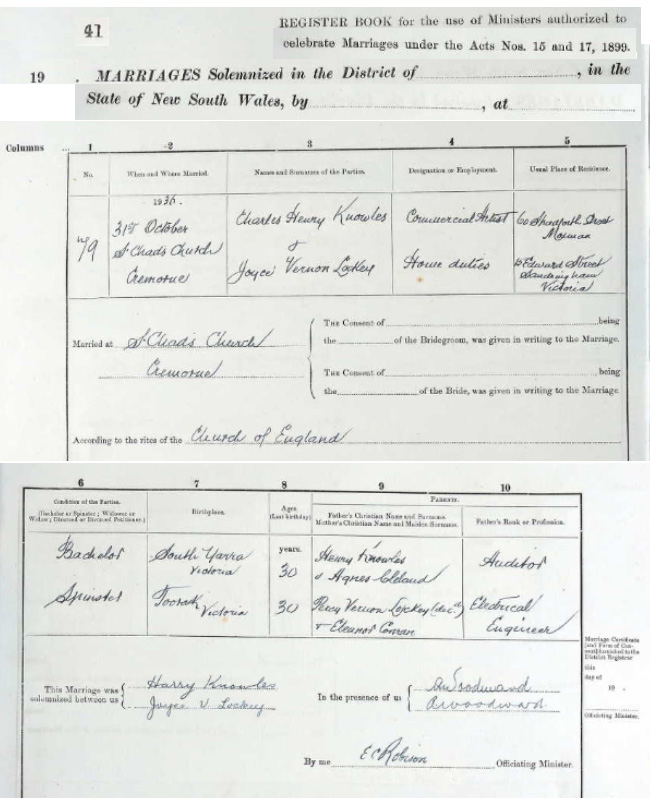 41
REGISTER BOOK for the use of Ministers authorized to
celebrate Marriages under the Acts Nos. 15 and 17, 1899.
19 . MARRIAGES Solemnized in the District of , in the
State of New South Wales, by , at
Columns 1 2 3 4 5
No. When and Where Married. Names and Surnames of the Parties. Designation or Employment. Usual Place of Residence.
1936.
31st October Charles Henry Knowles Commercial Artist 60 Shadforth Street
Mosman
79 St Chads Church &
Cremorne Joyce Vernon Lockey Home duties Edward Street
Sandringham
Victoria
Married at St Chads Church
Cremorne
THE Consent of being
the of the Bridegroom, was given in writing to the Marriage.
THE Consent of being
the of the Bride, was given in writing to the Marriage.
According to the rites of the Church of England
6 7 8 9 10
Condition of the Parties. Birthplace. Ages. PARENTS.
(Bachelor or Spinster; Widower or Widow; Divorced or Divorced Petitioner.) (Last birthday) Father's Christian Name and Surname. Father's Rank or Profession.
Mother's Christian Name and Maiden Surname.
years.
Bachelor South Yarra 30 Henry Knowles Auditor
Victoria & Agnes
Spinster Toorak 30 Percy Vernon Lockey (dec'd) Electrical
Victoria & Eleanor Engineer
Marriage Certificate
District Registrar
this
day of
19 .
Officiating Minister.
This Marriage was Harry Knowles In the presence of us
solemnized between us Joyce V. Lockey Woodward
By me E C Robison Officiating Minister.